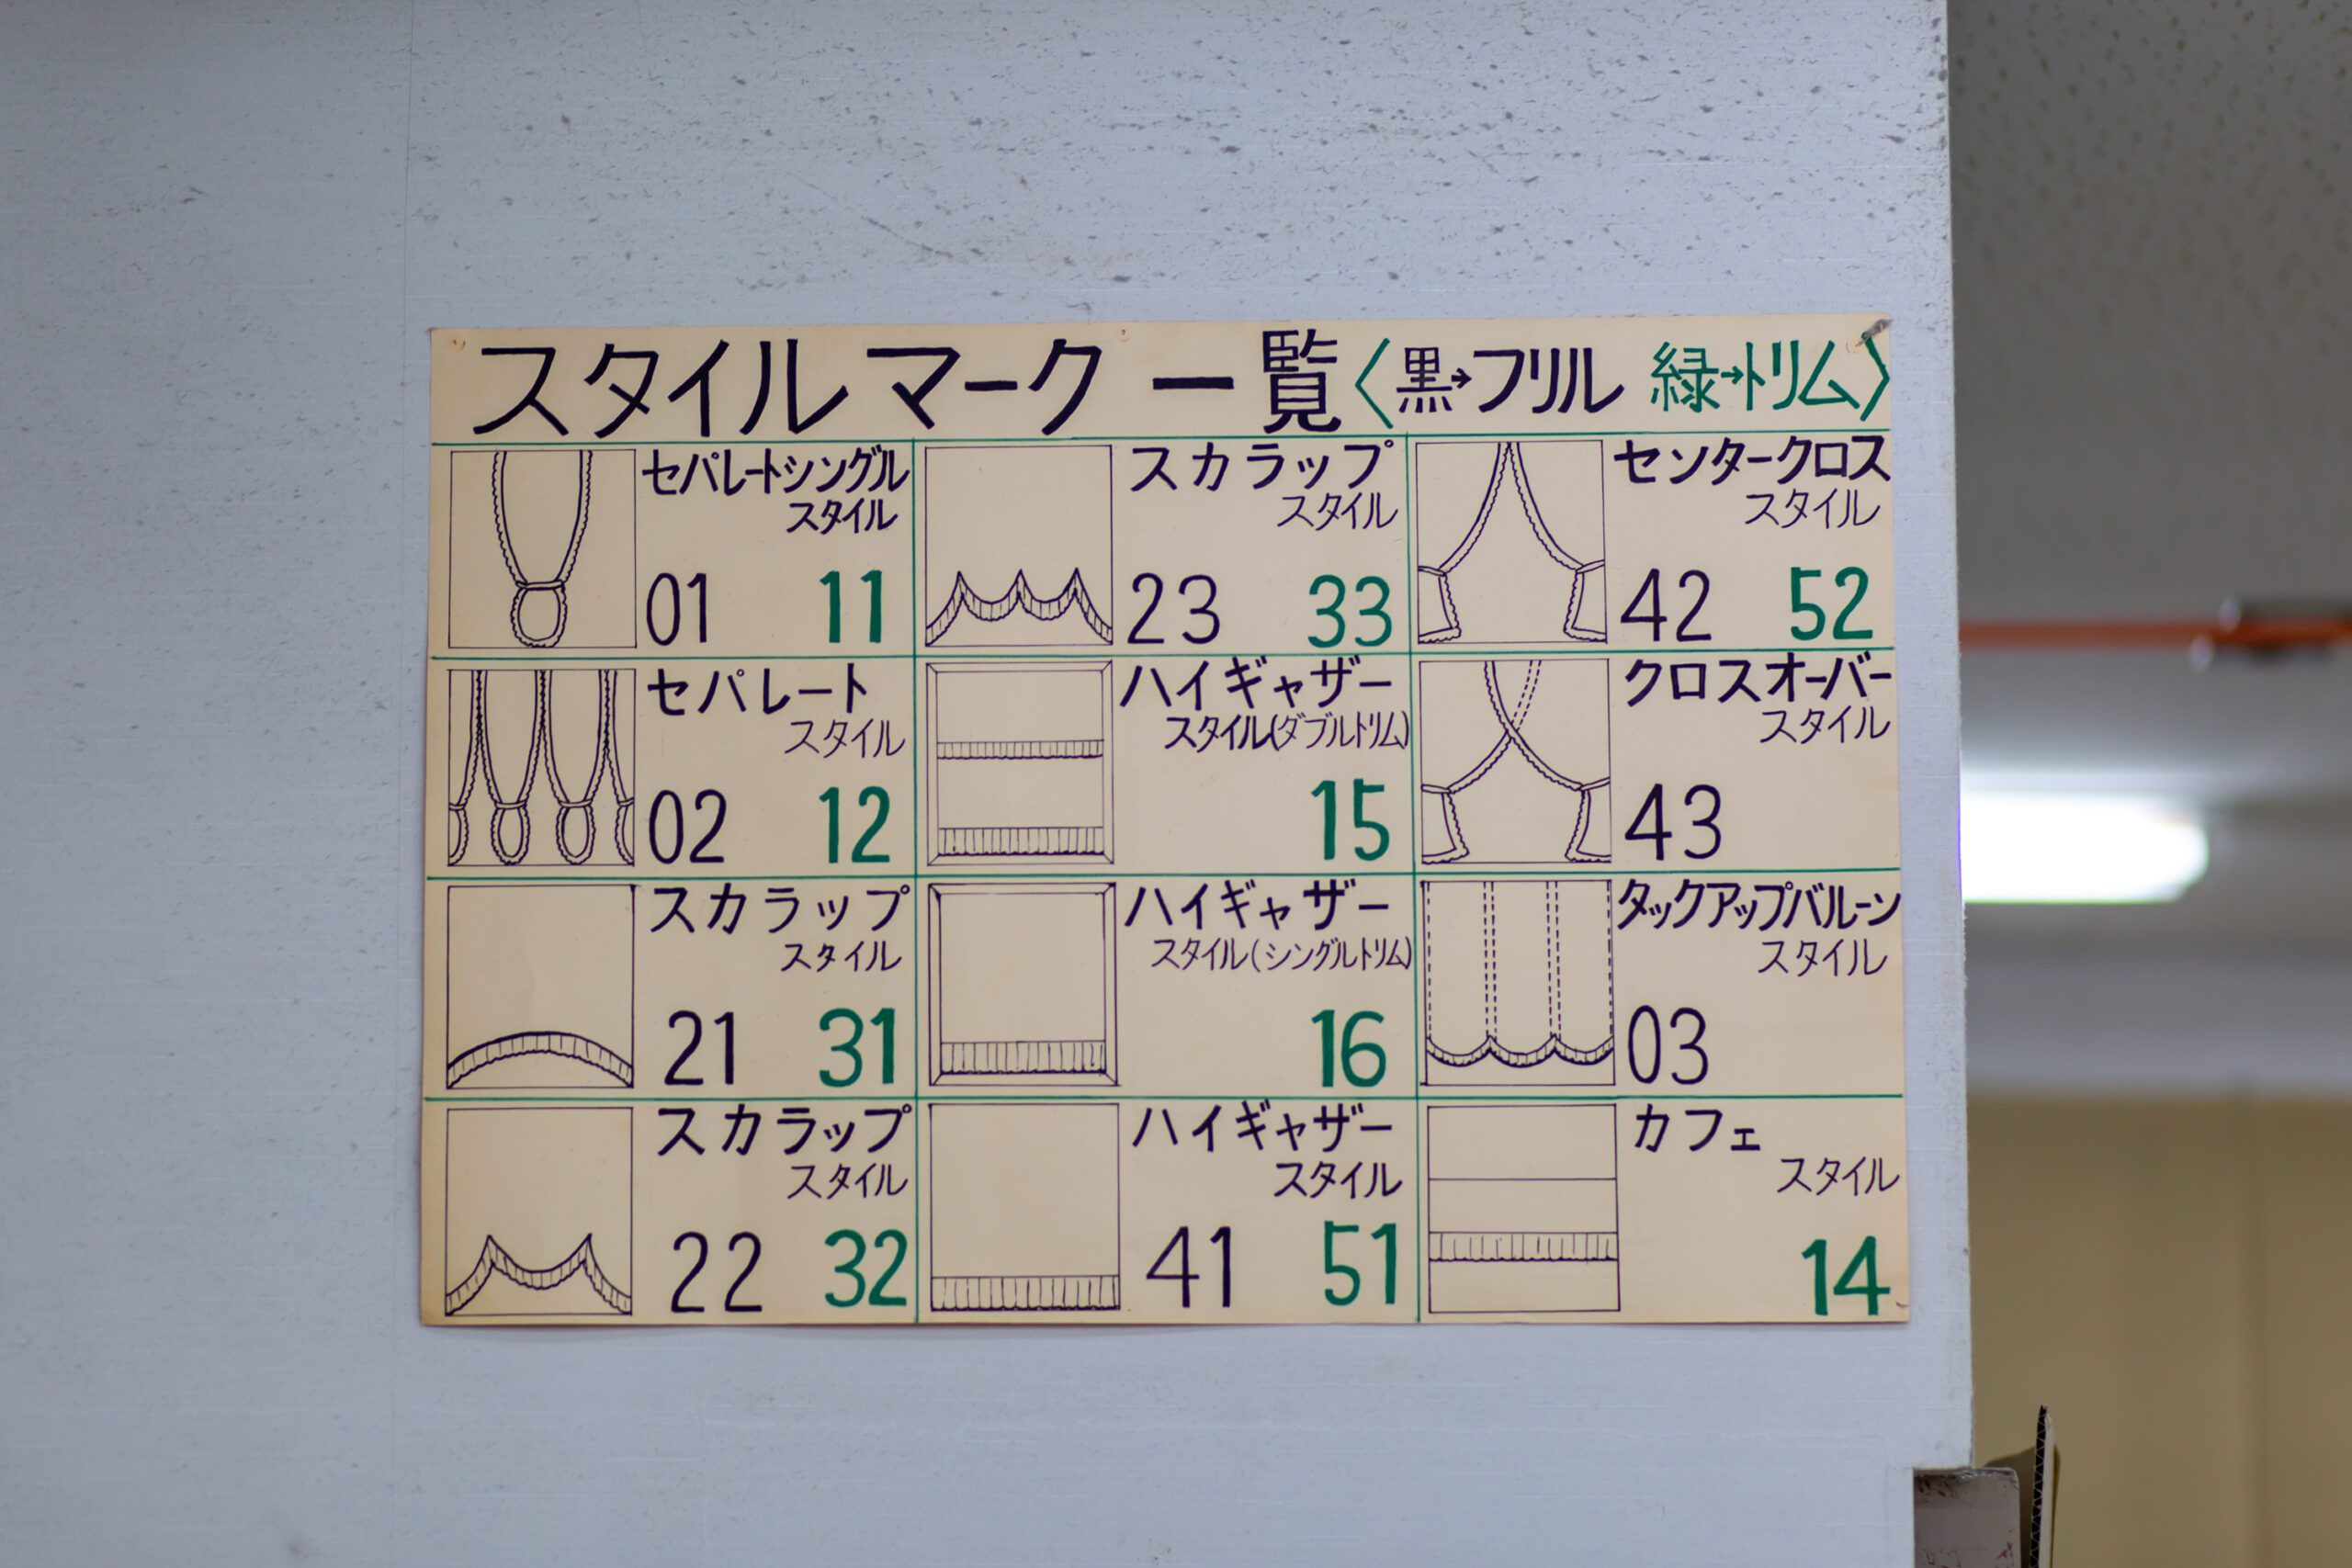 スタイルマーク一覧〈黒→フリル 緑→トリム〉
セパレートシングル
スタイル
01 11
セパレート
スタイル
02 12
スカラップ
スタイル
21 31
スカラップ
スタイル
22 32
スカラップ
スタイル
23 33
ハイギャザー
スタイル(ダブルトリム)
15
ハイギャザー
スタイル(シングルトリム)
16
ハイギャザー
スタイル
41 51
センタークロス
スタイル
42 52
クロスオーバー
スタイル
43
タックアップバルーン
スタイル
03
カフェ
スタイル
14